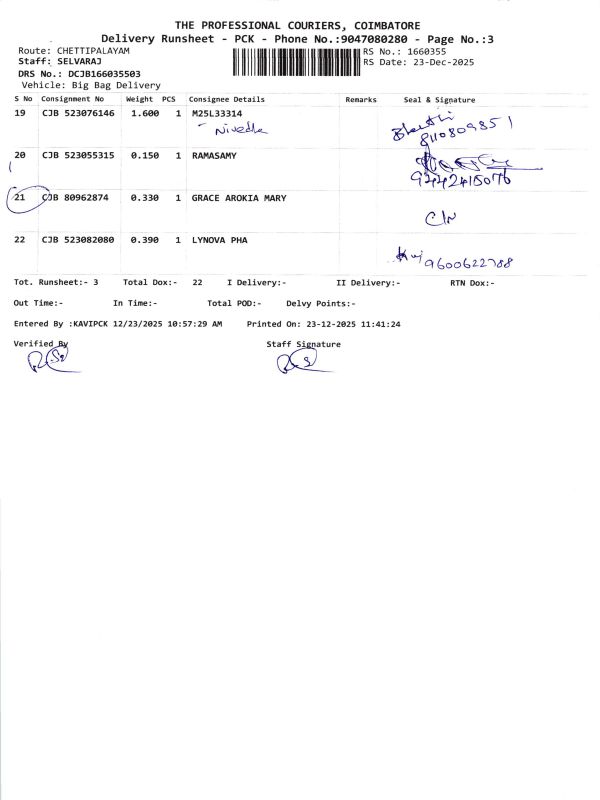 THE PROFESSIONAL COURIERS, COIMBATORE
Delivery Runsheet - PCK - Phone No.:9047080280 - Page No.:3
Route: CHETTIPALAYAM RS No.: 1660355
Staff: SELVARAJ RS Date: 23-Dec-2025
DRS No.: DCJB166035503
Vehicle: Big Bag Delivery
S No Consignment No Weight PCS Consignee Details Remarks Seal & Signature
19 CJB 523076146 1.600 1 M25L33314
Nivedha
8110809851
20 CJB 523055315 0.150 1 RAMASAMY
9442415076
21 CJB 80962874 0.330 1 GRACE AROKIA MARY
22 CJB 523082080 0.390 1 LYNOVA PHA
9600622788
Tot. Runsheet:- 3 Total Dox:- 22 I Delivery:- II Delivery:- RTN Dox:-
Out Time:- In Time:- Total POD:- Delvy Points:-
Entered By :KAVIPCK 12/23/2025 10:57:29 AM Printed On: 23-12-2025 11:41:24
Verified By Staff Signature